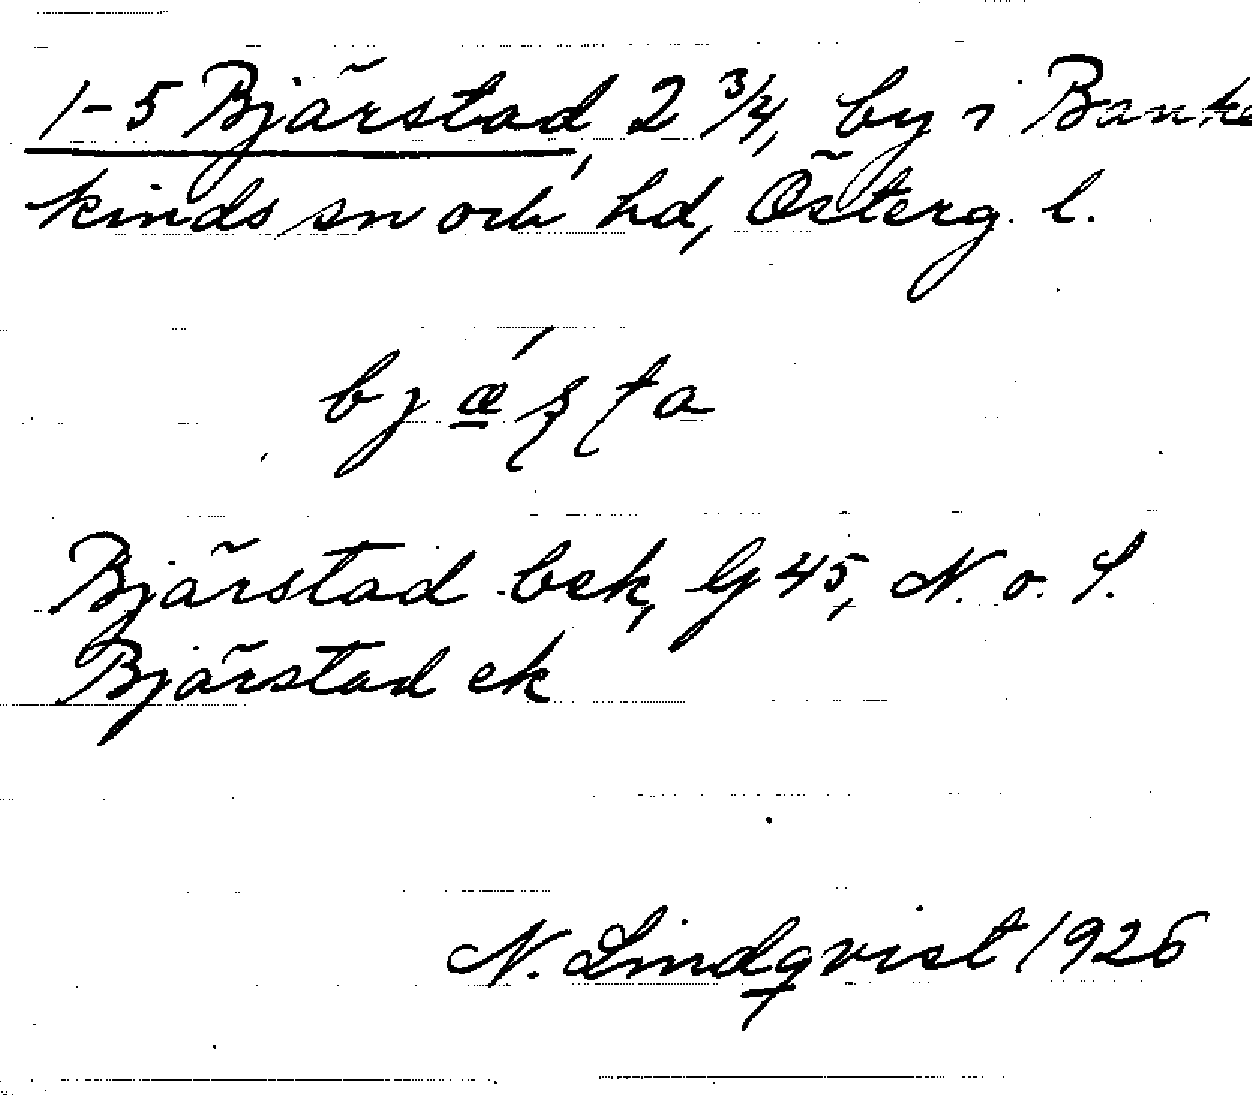 1-5 Bjärstad, 2 3/4, by i Banke
kinds sn och hd, Österg. l.
Bjärstad bek, G 45, N. o. S.
Bjärstad ek
N. Lindqvist 1926